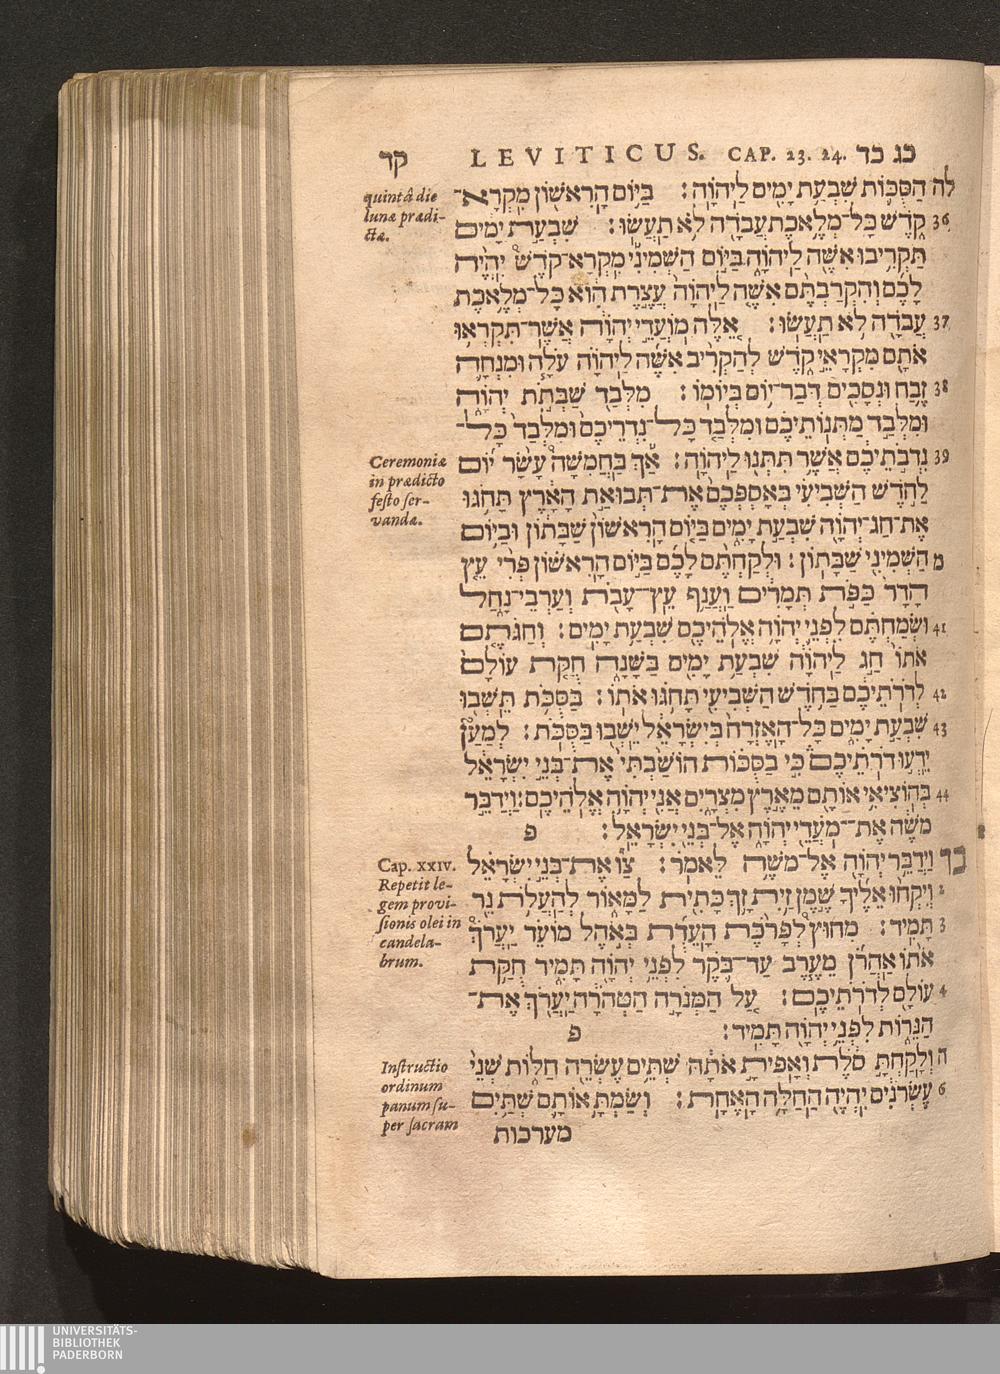 קד LEVITICUS. CAP. 23. 24. כג כד
לה הַסֻּכּוֹת שִׁבְעַת יָמִים לַיהוָֹה׃ בַּיּוֹם הָרִאשׁוֹן מִקְרָא־
36 קֹדֶשׁ כָּל־מְלֶאכֶת עֲבֹדָה לֹא תַעֲשׂוּ׃ שִׁבְעַת יָמִים
תַּקְרִיבוּ אִשֶּׁה לַיהוָֹה בַּיּוֹם הַשְּׁמִינִי מִקְרָא־קֹדֶשׁ יִהְיֶה
לָכֶם וְהִקְרַבְתֶּם אִשֶּׁה לַיהוָֹה עֲצֶרֶת הִוא כָּל־מְלֶאכֶת
37 עֲבֹדָה לֹא תַעֲשׂוּ׃ אֵלֶּה מוֹעֲדֵי יְהוָֹה אֲשֶׁר־תִּקְרְאוּ
אֹתָם מִקְרָאֵי קֹדֶשׁ לְהַקְרִיב אִשֶּׁה לַיהוָֹה עֹלָה וּמִנְחָה
38 זֶבַח וּנְסָכִים דְּבַר־יוֹם בְּיוֹמוֹ׃ מִלְּבַד שַׁבְּתֹת יְהוָֹה
וּמִלְּבַד מַתְּנוֹתֵיכֶם וּמִלְּבַד כָּל־נִדְרֵיכֶם וּמִלְּבַד כָּל־
39 נִדְבֹתֵיכֶם אֲשֶׁר תִּתְּנוּ לַיהוָֹה׃ אַךְ בַּחֲמִשָּׁה עָשָׂר יוֹם
לַחֹדֶשׁ הַשְּׁבִיעִי בְּאָסְפְּכֶם אֶת־תְּבוּאַת הָאָרֶץ תָּחֹגּוּ
אֶת־חַג־יְהוָֹה שִׁבְעַת יָמִים בַּיּוֹם הָרִאשׁוֹן שַׁבָּתוֹן וּבַיּוֹם
מ הַשְּׁמִינִי שַׁבָּתוֹן׃ וּלְקַחְתֶּם לָכֶם בַּיּוֹם הָרִאשׁוֹן פְּרִי עֵץ
הָדָר כַּפֹּת תְּמָרִים וַעֲנַף עֵץ־עָבֹת וְעַרְבֵי־נָחַל
41 וּשְׂמַחְתֶּם לִפְנֵי יְהוָֹה אֱלֹהֵיכֶם שִׁבְעַת יָמִים׃ וְחַגֹּתֶם
אֹתוֹ חַג לַיהוָֹה שִׁבְעַת יָמִים בַּשָּׁנָה חֻקַּת עוֹלָם
42 לְדֹרֹתֵיכֶם בַּחֹדֶשׁ הַשְּׁבִיעִי תָּחֹגּוּ אֹתוֹ׃ בַּסֻּכֹּת תֵּשְׁבוּ
43 שִׁבְעַת יָמִים כָּל־הָאֶזְרָח בְּיִשְׂרָאֵל יֵשְׁבוּ בַּסֻּכֹּת׃ לְמַעַן
יֵדְעוּ דֹרֹתֵיכֶם כִּי בַסֻּכּוֹת הוֹשַׁבְתִּי אֶת־בְּנֵי יִשְׂרָאֵל
44 בְּהוֹצִיאִי אוֹתָם מֵאֶרֶץ מִצְרָיִם אֲנִי יְהוָֹה אֱלֹהֵיכֶם׃ וַיְדַבֵּר
מֹשֶׁה אֶת־מֹעֲדֵי יְהוָֹה אֶל־בְּנֵי יִשְׂרָאֵל׃ פ
כד וַיְדַבֵּר יְהוָֹה אֶל־מֹשֶׁה לֵּאמֹר׃ צַו אֶת־בְּנֵי יִשְׂרָאֵל
2 וְיִקְחוּ אֵלֶיךָ שֶׁמֶן זַיִת זָךְ כָּתִית לַמָּאוֹר לְהַעֲלֹת נֵר
3 תָּמִיד׃ מִחוּץ לְפָרֹכֶת הָעֵדֻת בְּאֹהֶל מוֹעֵד יַעֲרֹךְ
אֹתוֹ אַהֲרֹן מֵעֶרֶב עַד־בֹּקֶר לִפְנֵי יְהוָֹה תָּמִיד חֻקַּת
4 עוֹלָם לְדֹרֹתֵיכֶם׃ עַל הַמְּנֹרָה הַטְּהֹרָה יַעֲרֹךְ אֶת־
הַנֵּרוֹת לִפְנֵי יְהוָֹה תָּמִיד׃ פ
ה וְלָקַחְתָּ סֹלֶת וְאָפִיתָ אֹתָהּ שְׁתֵּים עֶשְׂרֵה חַלּוֹת שְׁנֵי
6 עֶשְׂרֹנִים יִהְיֶה הַחַלָּה הָאֶחָת׃ וְשַׂמְתָּ אוֹתָם שְׁתַּיִם
מערכות
quintâ die
lunæ prædi-
ctæ.
Ceremoniæ
in prædicto
festo ser-
vandæ.
Cap. XXIV.
Repetit le-
gem provi-
sionis olei in
candela-
brum.
Instructio
ordinum
panum su-
per sacram
UNIVERSITÄTS-
BIBLIOTHEK
PADERBORN